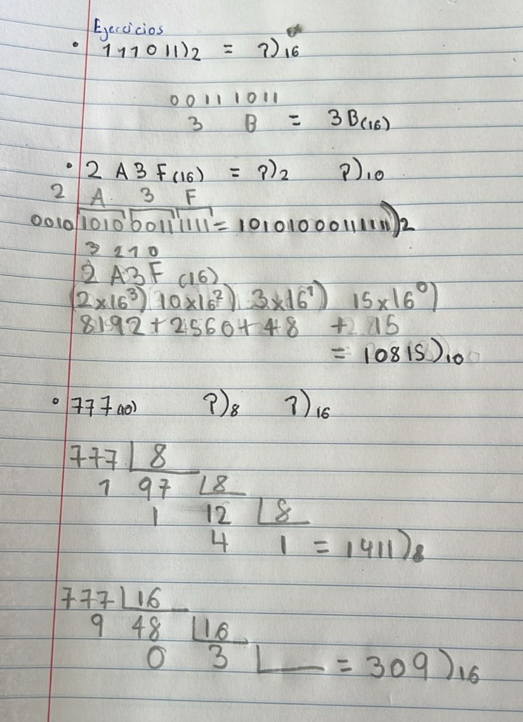 Ejercicios
• 111011)2 = ?)16
00111011
3 B = 3B(16)
• 2A3F(16) = ?)2 ?)10
2 A 3 F
0010 1010 0011 1111 = 10101000111111)2
3 2 1 0
2 A3F (16)
(2x16³) 10x16²) 3x16¹) 15x16⁰)
8192 + 2560 + 48 + 15
= 10815)10
• 777(10) ?)8 ?)16
777 8
1 97 8
1 12 8
4 1 = 1411)8
777 16
9 48 16
0 3 = 309)16